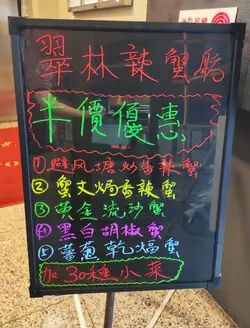 翠林辣蟹店
半價優惠
①避风塘炒香辣蟹
②蟹文焗香辣蟹
③黄金流沙蟹
④黑白胡椒蟹
⑤薯葡乾焗蟹
加30種小菜